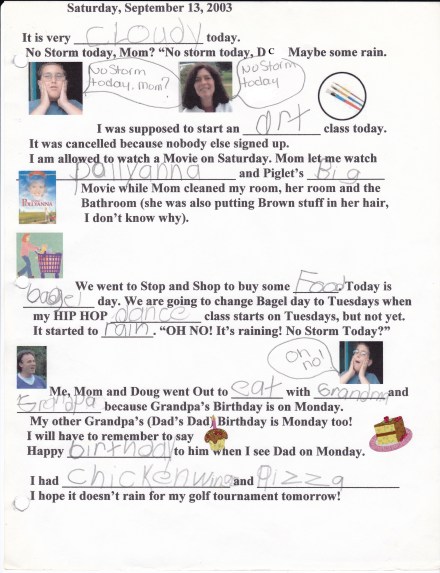 Saturday, September 13, 2003
It is very cloudy today.
No Storm today, Mom? “No storm today, DC Maybe some rain.
No Storm
today, mom?
No Storm
today
I was supposed to start an art class today.
It was cancelled because nobody else signed up.
I am allowed to watch a Movie on Saturday. Mom let me watch
pollyanna and Piglet’s Big
Movie while Mom cleaned my room, her room and the
Bathroom (she was also putting Brown stuff in her hair,
I don’t know why).
POLLYANNA
We went to Stop and Shop to buy some Food. Today is
bagel day. We are going to change Bagel day to Tuesdays when
my HIP HOP dance class starts on Tuesdays, but not yet.
It started to rain. “OH NO! It’s raining! No Storm Today?”
Oh
no!
Me, Mom and Doug went Out to eat with Grandma and
Grandpa because Grandpa’s Birthday is on Monday.
My other Grandpa’s (Dad’s Dad) Birthday is Monday too!
I will have to remember to say
Happy birthday to him when I see Dad on Monday.
I had chicken wing and pizza
I hope it doesn’t rain for my golf tournament tomorrow!